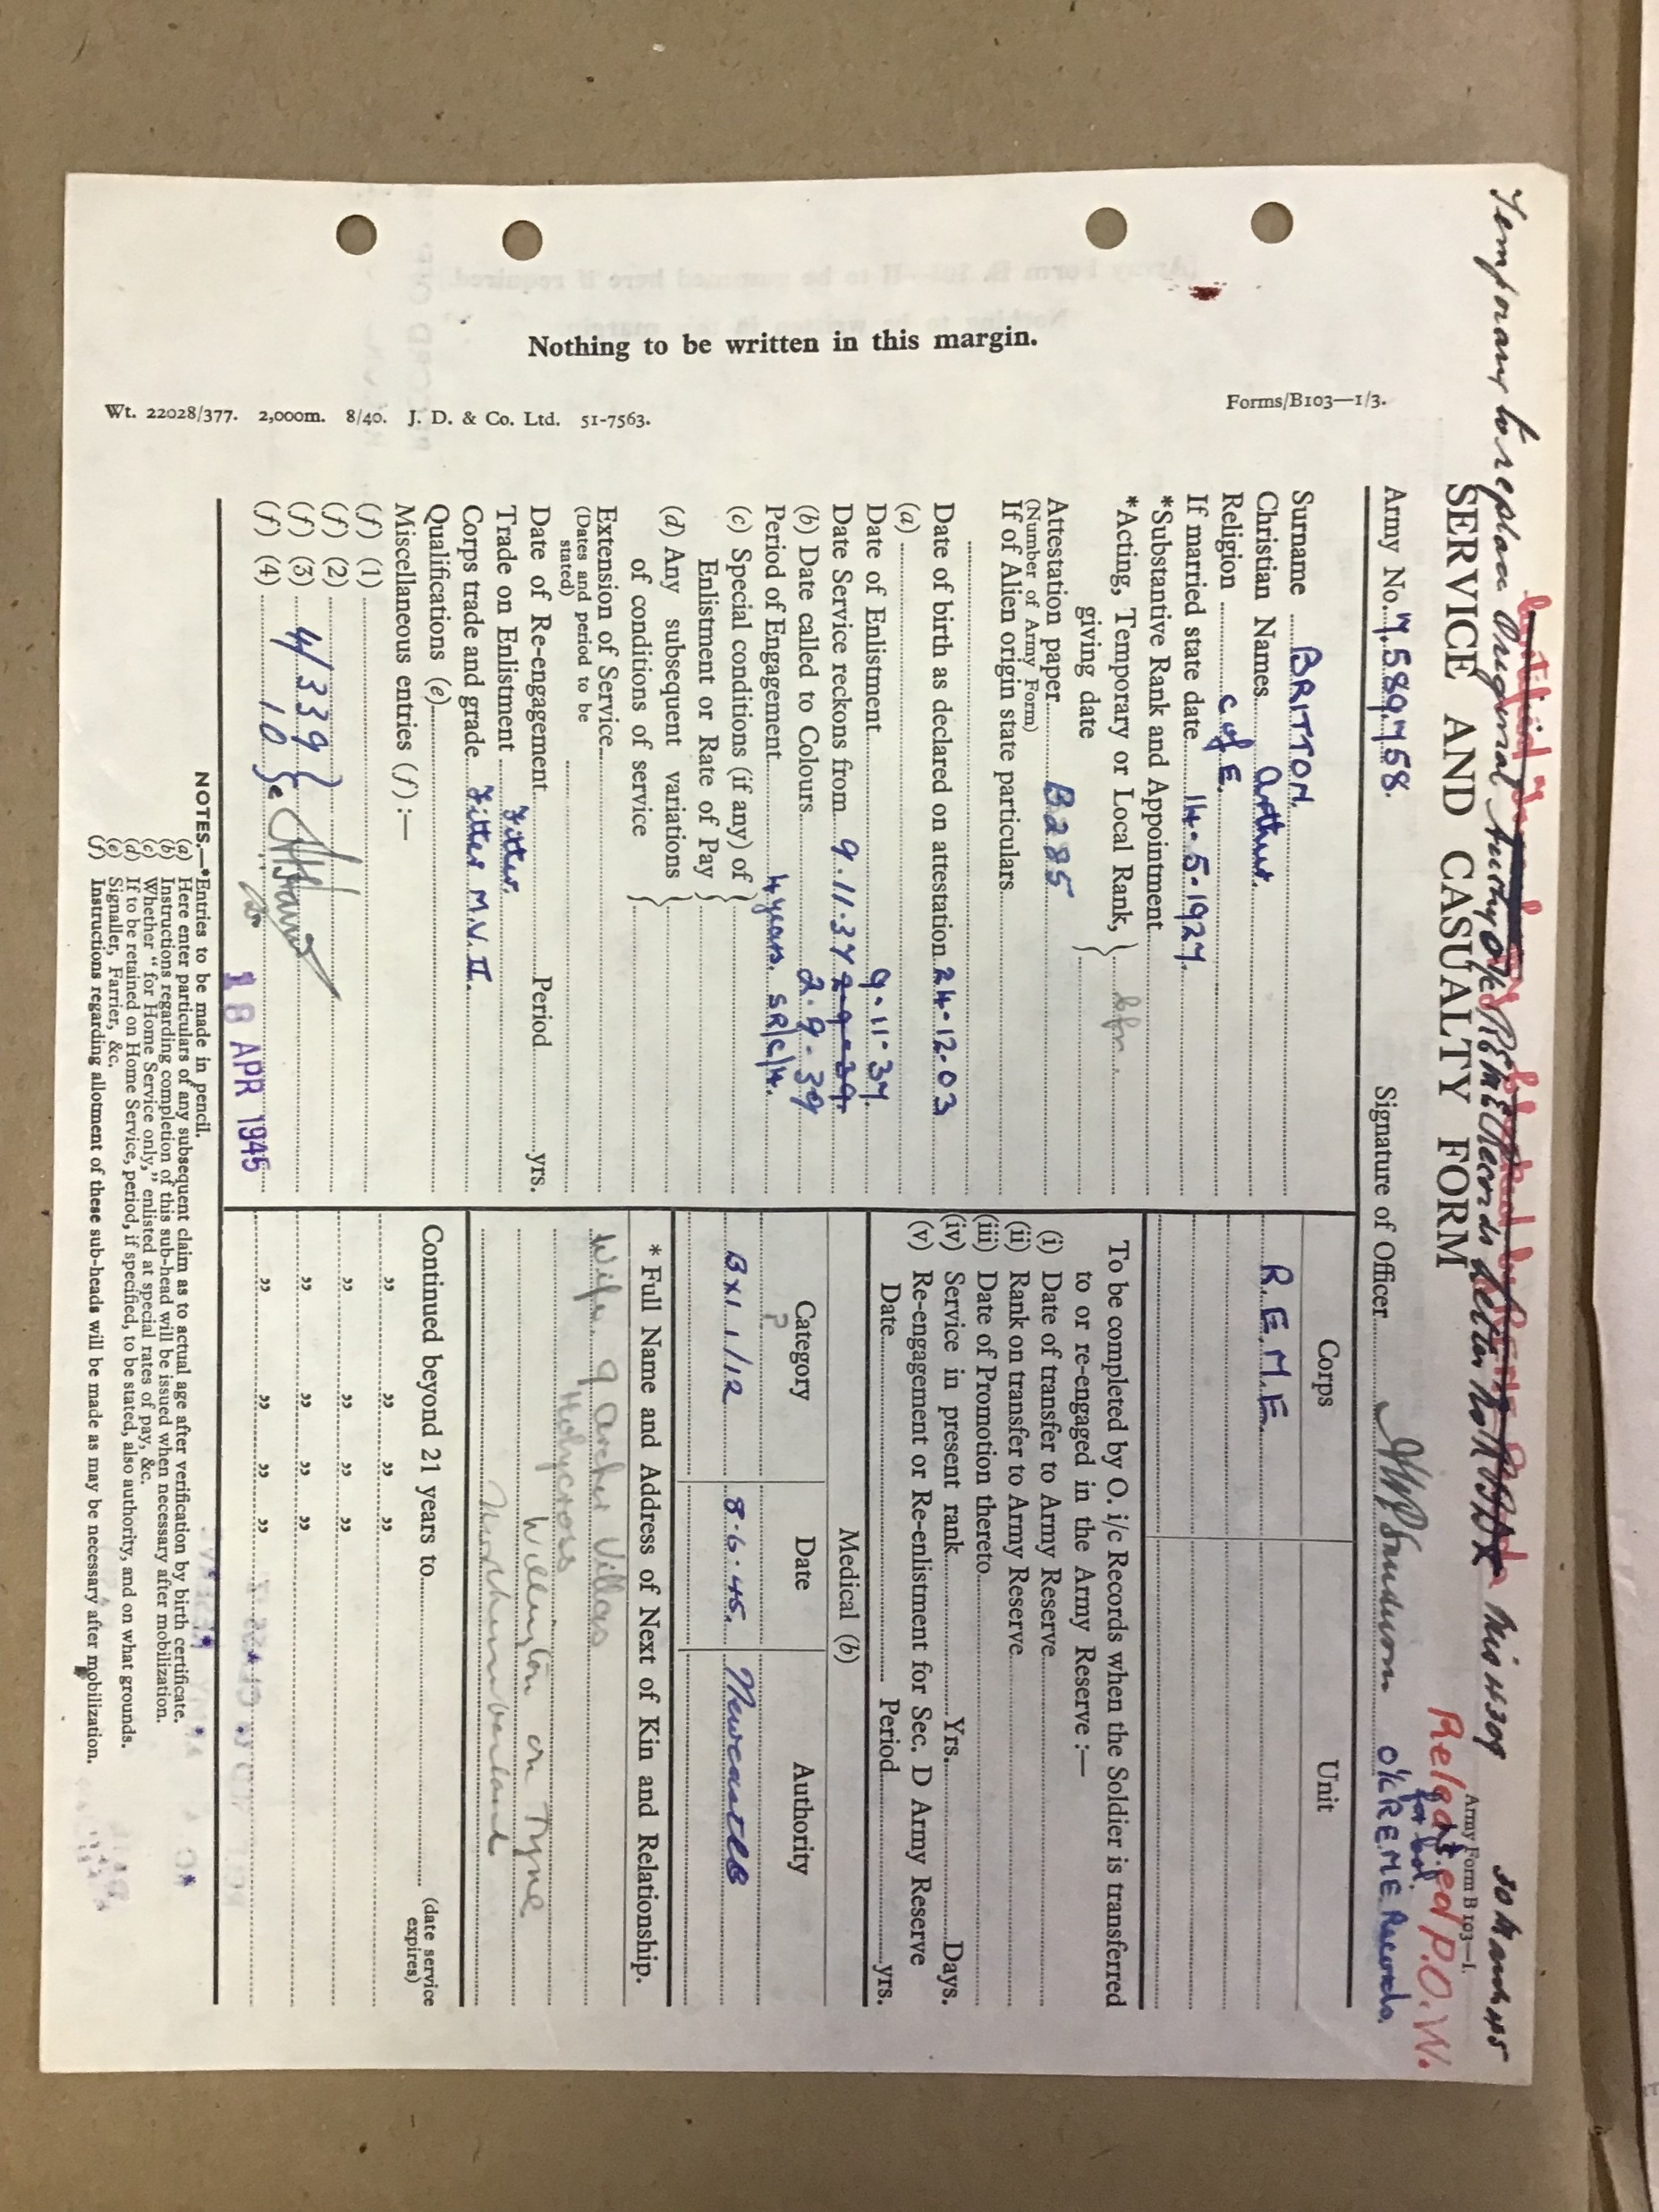 Temporary to replace Original Authy O i/c REME Records letter No Mis 4309 30 March 45
Army Form B 103—I.
Released P.O.W.
SERVICE AND CASUALTY FORM
Army No. 7.589.758. Signature of Officer O i/c R.E.M.E. Records.
for Col.
Surname BRITTON.
Christian Names Arthur.
Religion C of E.
If married state date 14.5.1927.
*Substantive Rank and Appointment
*Acting, Temporary or Local Rank,
giving date
Attestation paper B285
(Number of Army Form)
If of Alien origin state particulars
Date of birth as declared on attestation 24.12.03
(a)
Date of Enlistment 9.11.37.
Date Service reckons from 9.11.37 2-9-39.
(b) Date called to Colours 2.9.39
Period of Engagement 4 years. SR/C/4.
(c) Special conditions (if any) of
Enlistment or Rate of Pay
(d) Any subsequent variations
of conditions of service
Extension of Service
(Dates and period to be
stated)
Date of Re-engagement Period yrs.
Trade on Enlistment Fitter.
Corps trade and grade Fitter M.V. II.
Qualifications (e)
Miscellaneous entries (f) :—
(f) (1)
(f) (2)
(f) (3) 4/339
(f) (4) 10
18 APR 1945
Corps Unit
R.E.M.E.
To be completed by O. i/c Records when the Soldier is transferred
to or re-engaged in the Army Reserve :—
(i) Date of transfer to Army Reserve
(ii) Rank on transfer to Army Reserve
(iii) Date of Promotion thereto
(iv) Service in present rank Yrs. Days.
(v) Re-engagement or Re-enlistment for Sec. D Army Reserve
Date Period yrs.
Medical (b)
Category Date Authority
?
BX1.1/12 8.6.45. Newcastle
* Full Name and Address of Next of Kin and Relationship.
Wife. 9 Archer Villas
Holycross
Willington on Tyne
Northumberland
Continued beyond 21 years to (date service
expires)
" " " "
" " " "
" " " "
" " " "
NOTES.—*Entries to be made in pencil.
(a) Here enter particulars of any subsequent claim as to actual age after verification by birth certificate.
(b) Instructions regarding completion of this sub-head will be issued when necessary after mobilization.
(c) Whether "for Home Service only," enlisted at special rates of pay, &c.
(d) If to be retained on Home Service, period, if specified, to be stated, also authority, and on what grounds.
(e) Signaller, Farrier, &c.
(f) Instructions regarding allotment of these sub-heads will be made as may be necessary after mobilization.
Nothing to be written in this margin.
Forms/B103—1/3.
Wt. 22028/377. 2,000m. 8/40. J. D. & Co. Ltd. 51-7563.